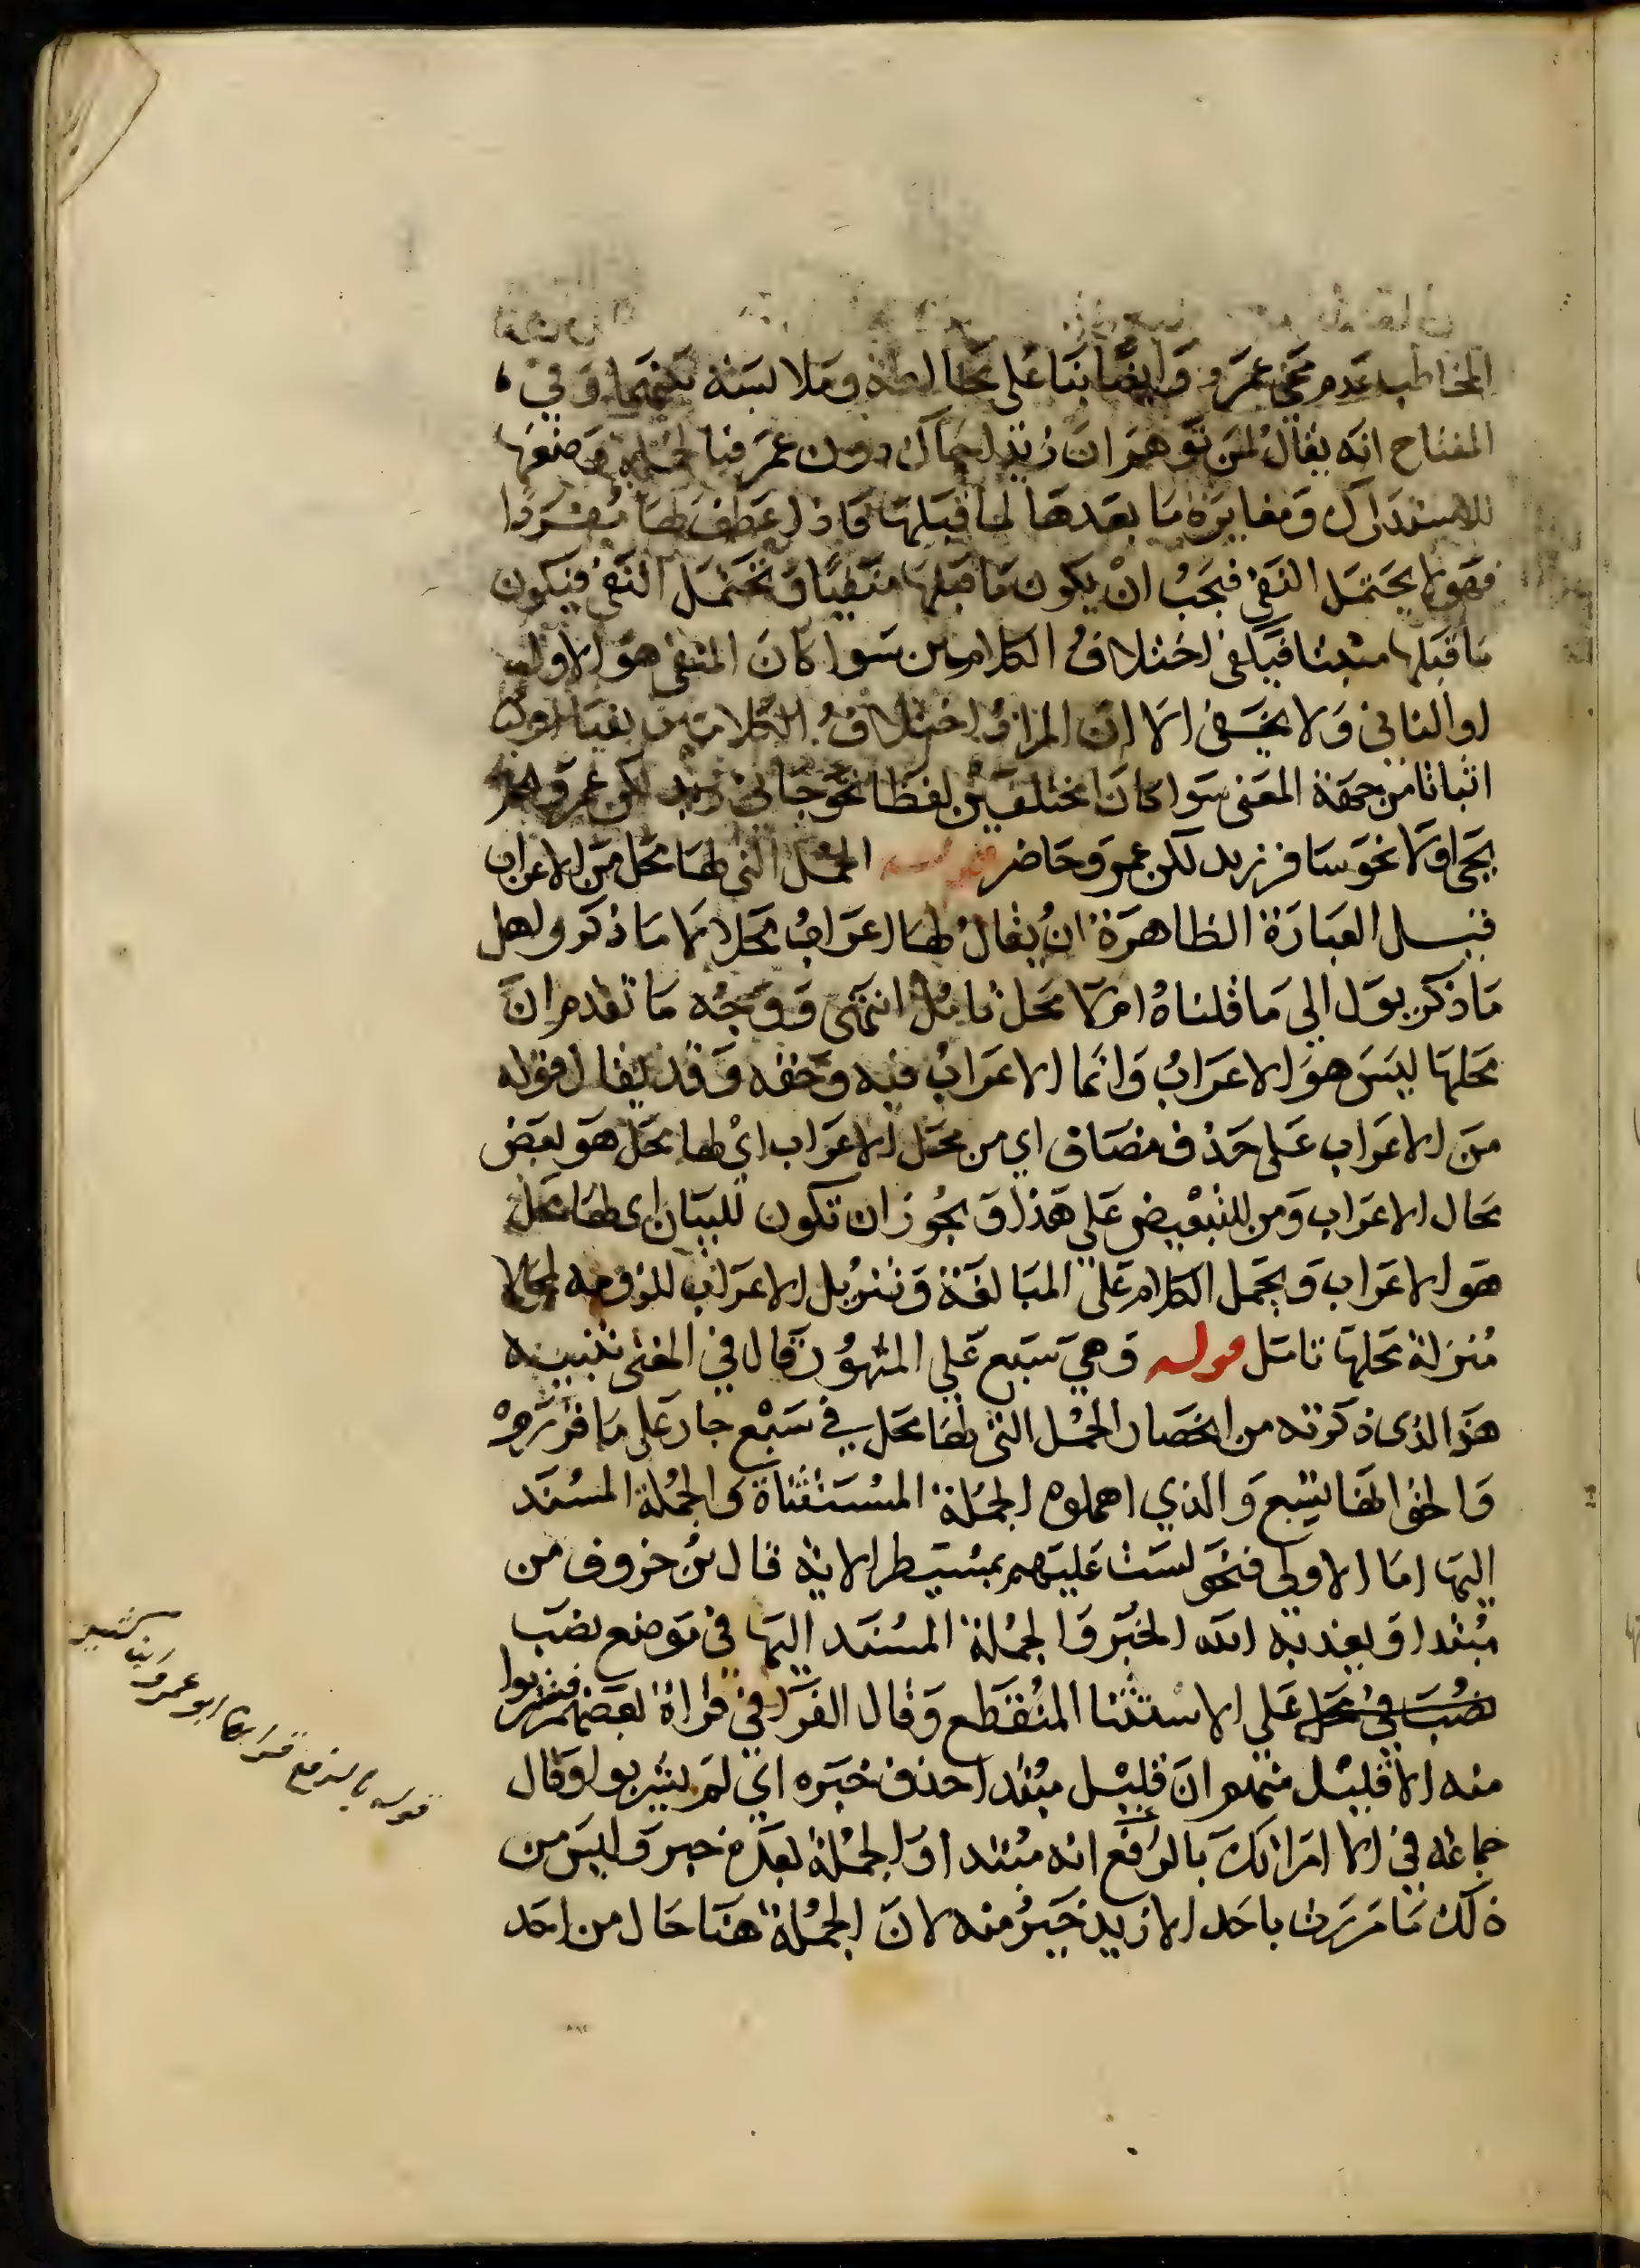 المخاطب عدم مجي عمرو وايضا بنا على مخالطة وملابسة بينهما وفي
المفتاح انه يقال لمن توهم ان زيدا جاك دون عمرو فبالجملة وضعها
للاستدراك ومغايرة ما بعدها لما قبلها فاذا عطف بها مفردا
فهو لا يحتمل النفي فيجب ان يكون ما قبلها منفيا وتحتمل النفي فيكون
ما قبلها مثبتا فيكفي اختلاف الكلامين سوا كان المنفي هو الاول
او الثاني ولا يخفى الا ان المراد اختلاف الكلامين نفيا او
اثباتا من جهة المعنى سوا كانا مختلفين لفظا نحو جاني زيد لكن عمرو لم
يجي اولا نحو سافر زيد لكن عمرو حاضر قوله الجمل التي لها محل من الاعراب
قيل العبارة الظاهرة ان يقال لها اعراب محلا لا ما ذكر ولعل
ما ذكر يول الى ما قلناه ام لا محل تامل انتهى ووجه ما تقدم ان
محلها ليس هو الاعراب وانما الاعراب فيه وحقه وقد يقال قوله
من الاعراب على حذف مضاف اي من محل الاعراب اي لها محل هو بعض
محال الاعراب ومن للتبعيض على هذا ويجوز ان تكون للبيان اي لها محل
هو الاعراب ويحمل الكلام على المبالغة وتنزيل الاعراب للزومه لمحلها
منزلة محلها تامل قوله وهي سبع على المشهور قال في المغني تنبيه
هذا الذي ذكرته من انحصار الجمل التي لها محل في سبع جار على ما قرروه
والحق انها تسع والذي اهملوه الجملة المستثناة والجملة المسند
اليها اما الاولى فنحو لست عليهم بمسيطر الاية قال بن خروف من
مبتدا ويعذبه الله الخبر والجملة المسند اليها في موضع نصب
نصب في محل على الاستثنا المنقطع وقال الفرا في قراة بعضهم فشربوا
منه الا قليل منهم ان قليل مبتدا حذف خبره اي لم يشربوا وقال
جماعة في الا امراتك بالرفع انه مبتدا والجملة بعده خبر وليس من
ذلك ما مررت باحد الا زيد خير منه لان الجملة هنا حال من احد
قوله بالرفع قراها ابو عمرو وابن كثير